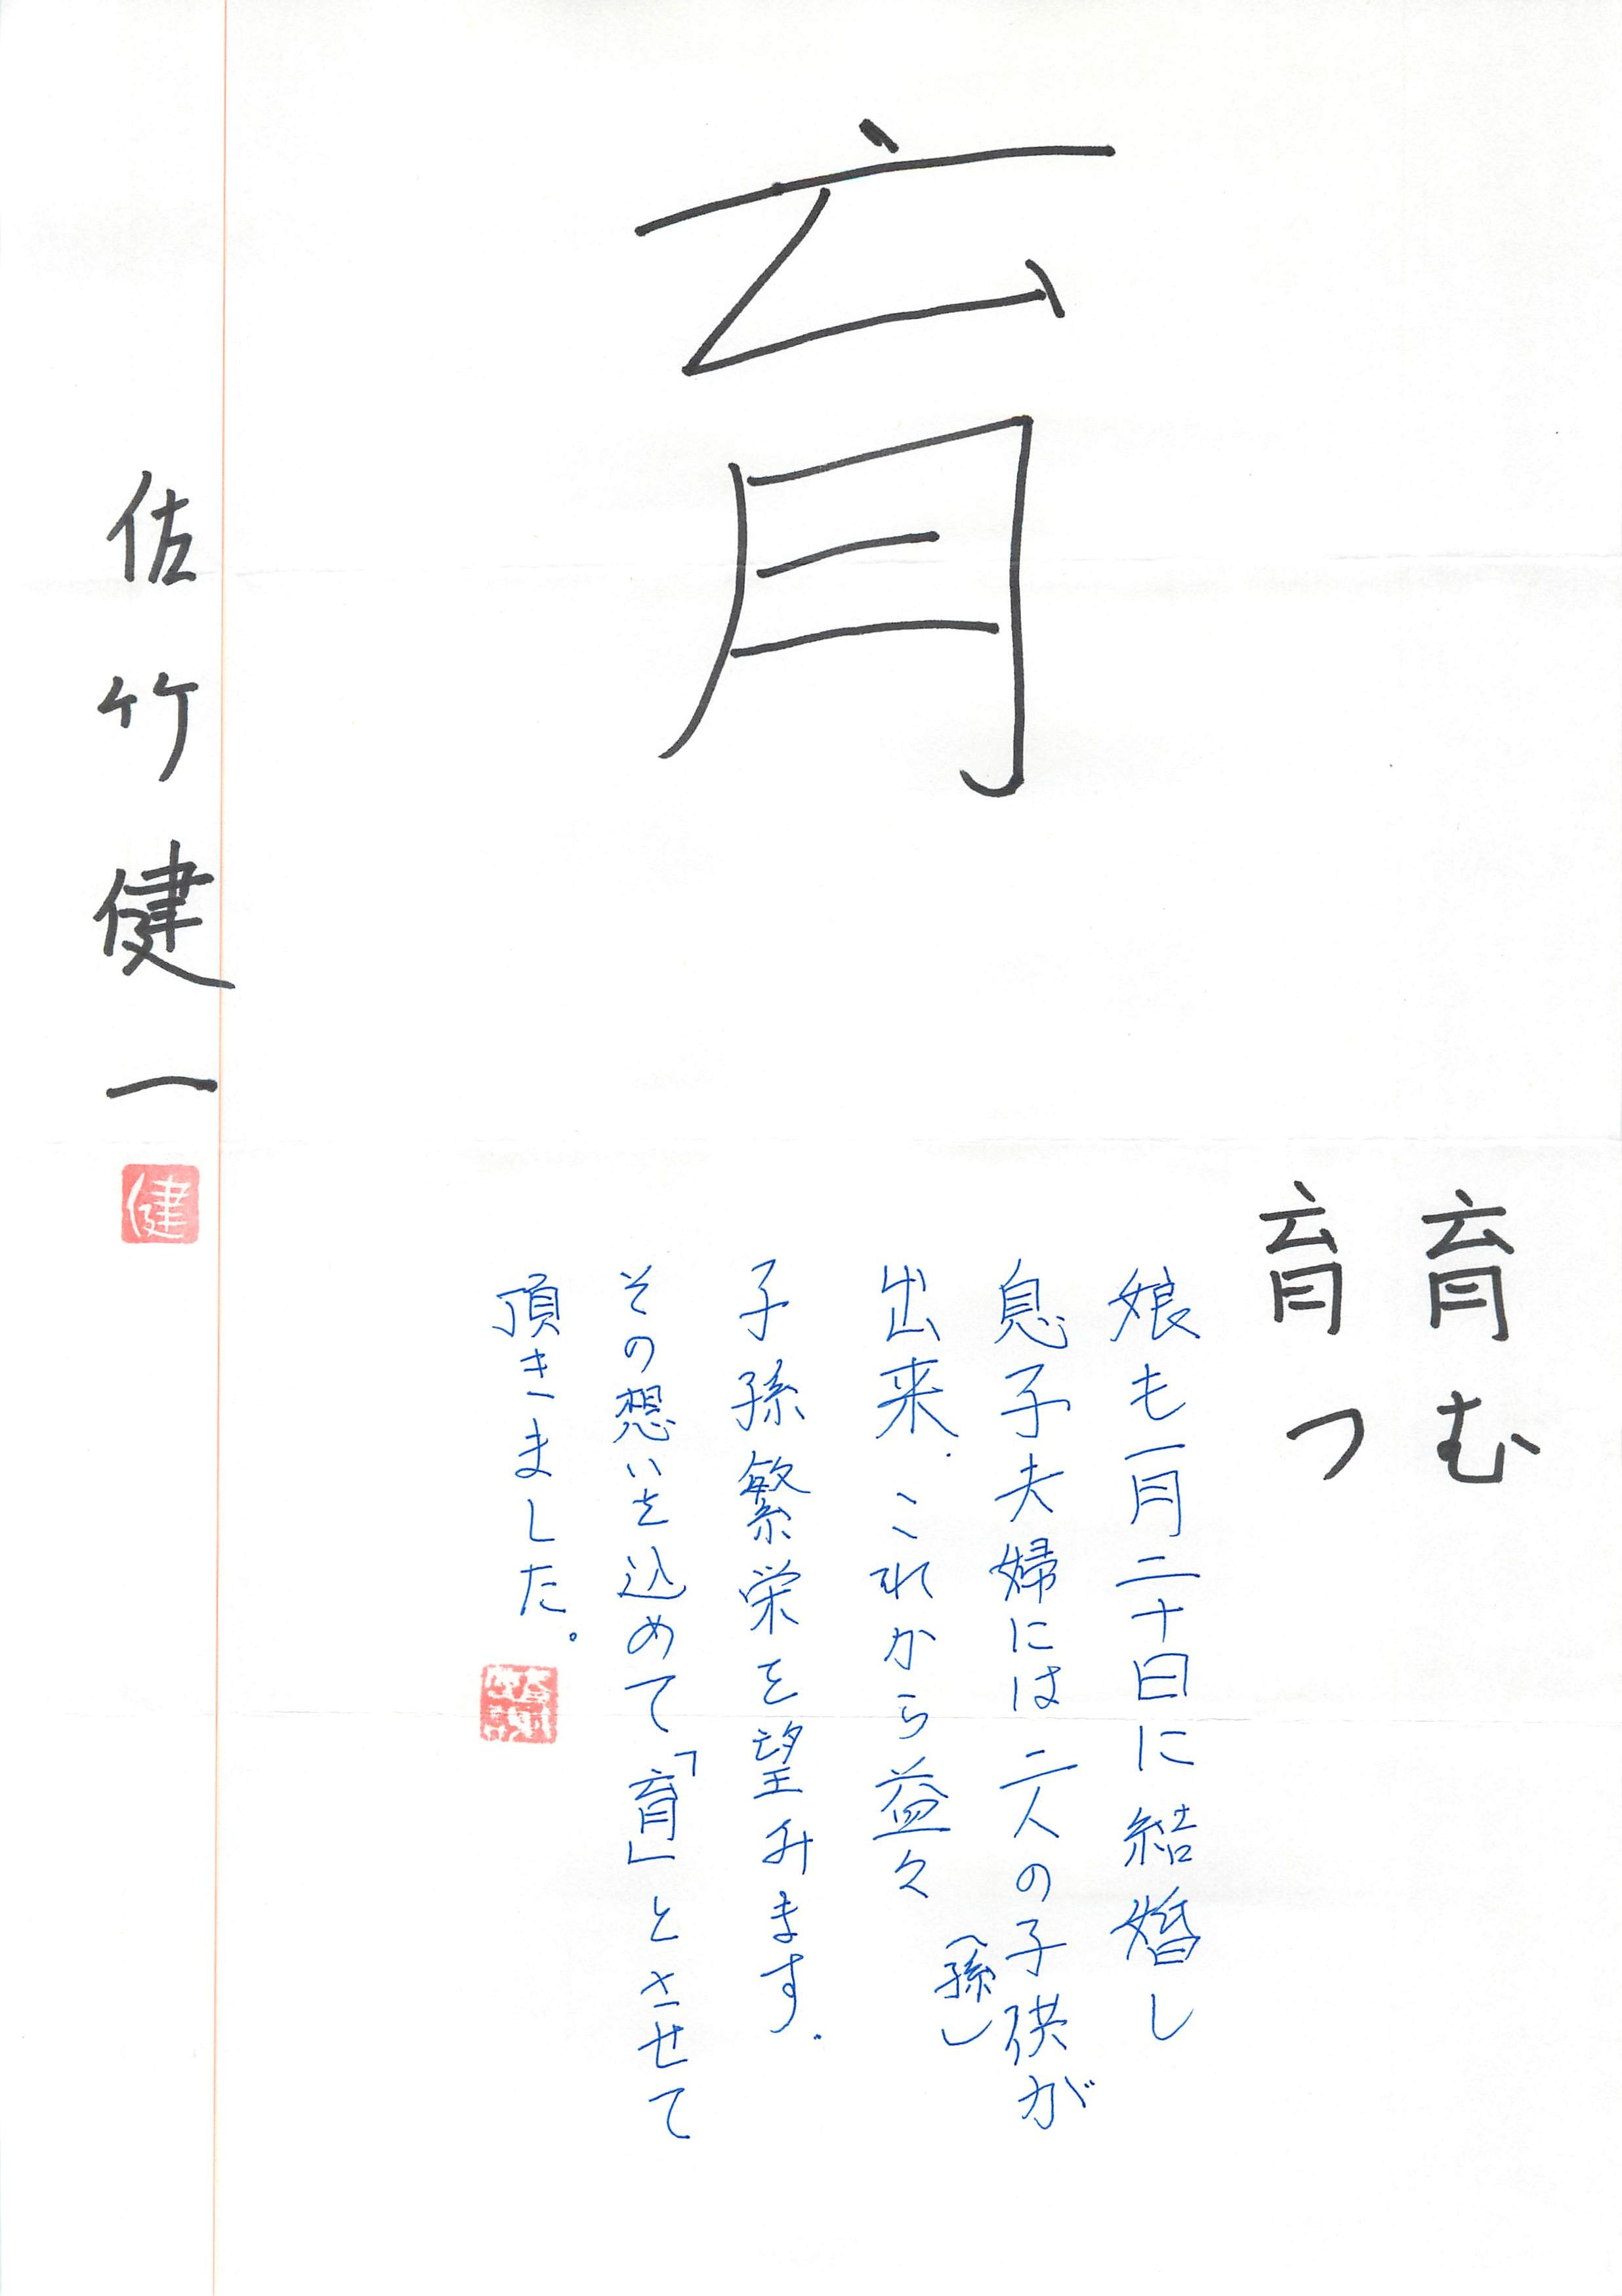 育
育む
育つ
娘も一月二十日に結婚し
息子夫婦には二人の子供が
(孫)
出来、これから益々
子孫繁栄を望みます。
その想いを込めて「育」とさせて
頂きました。
佐竹健一
健